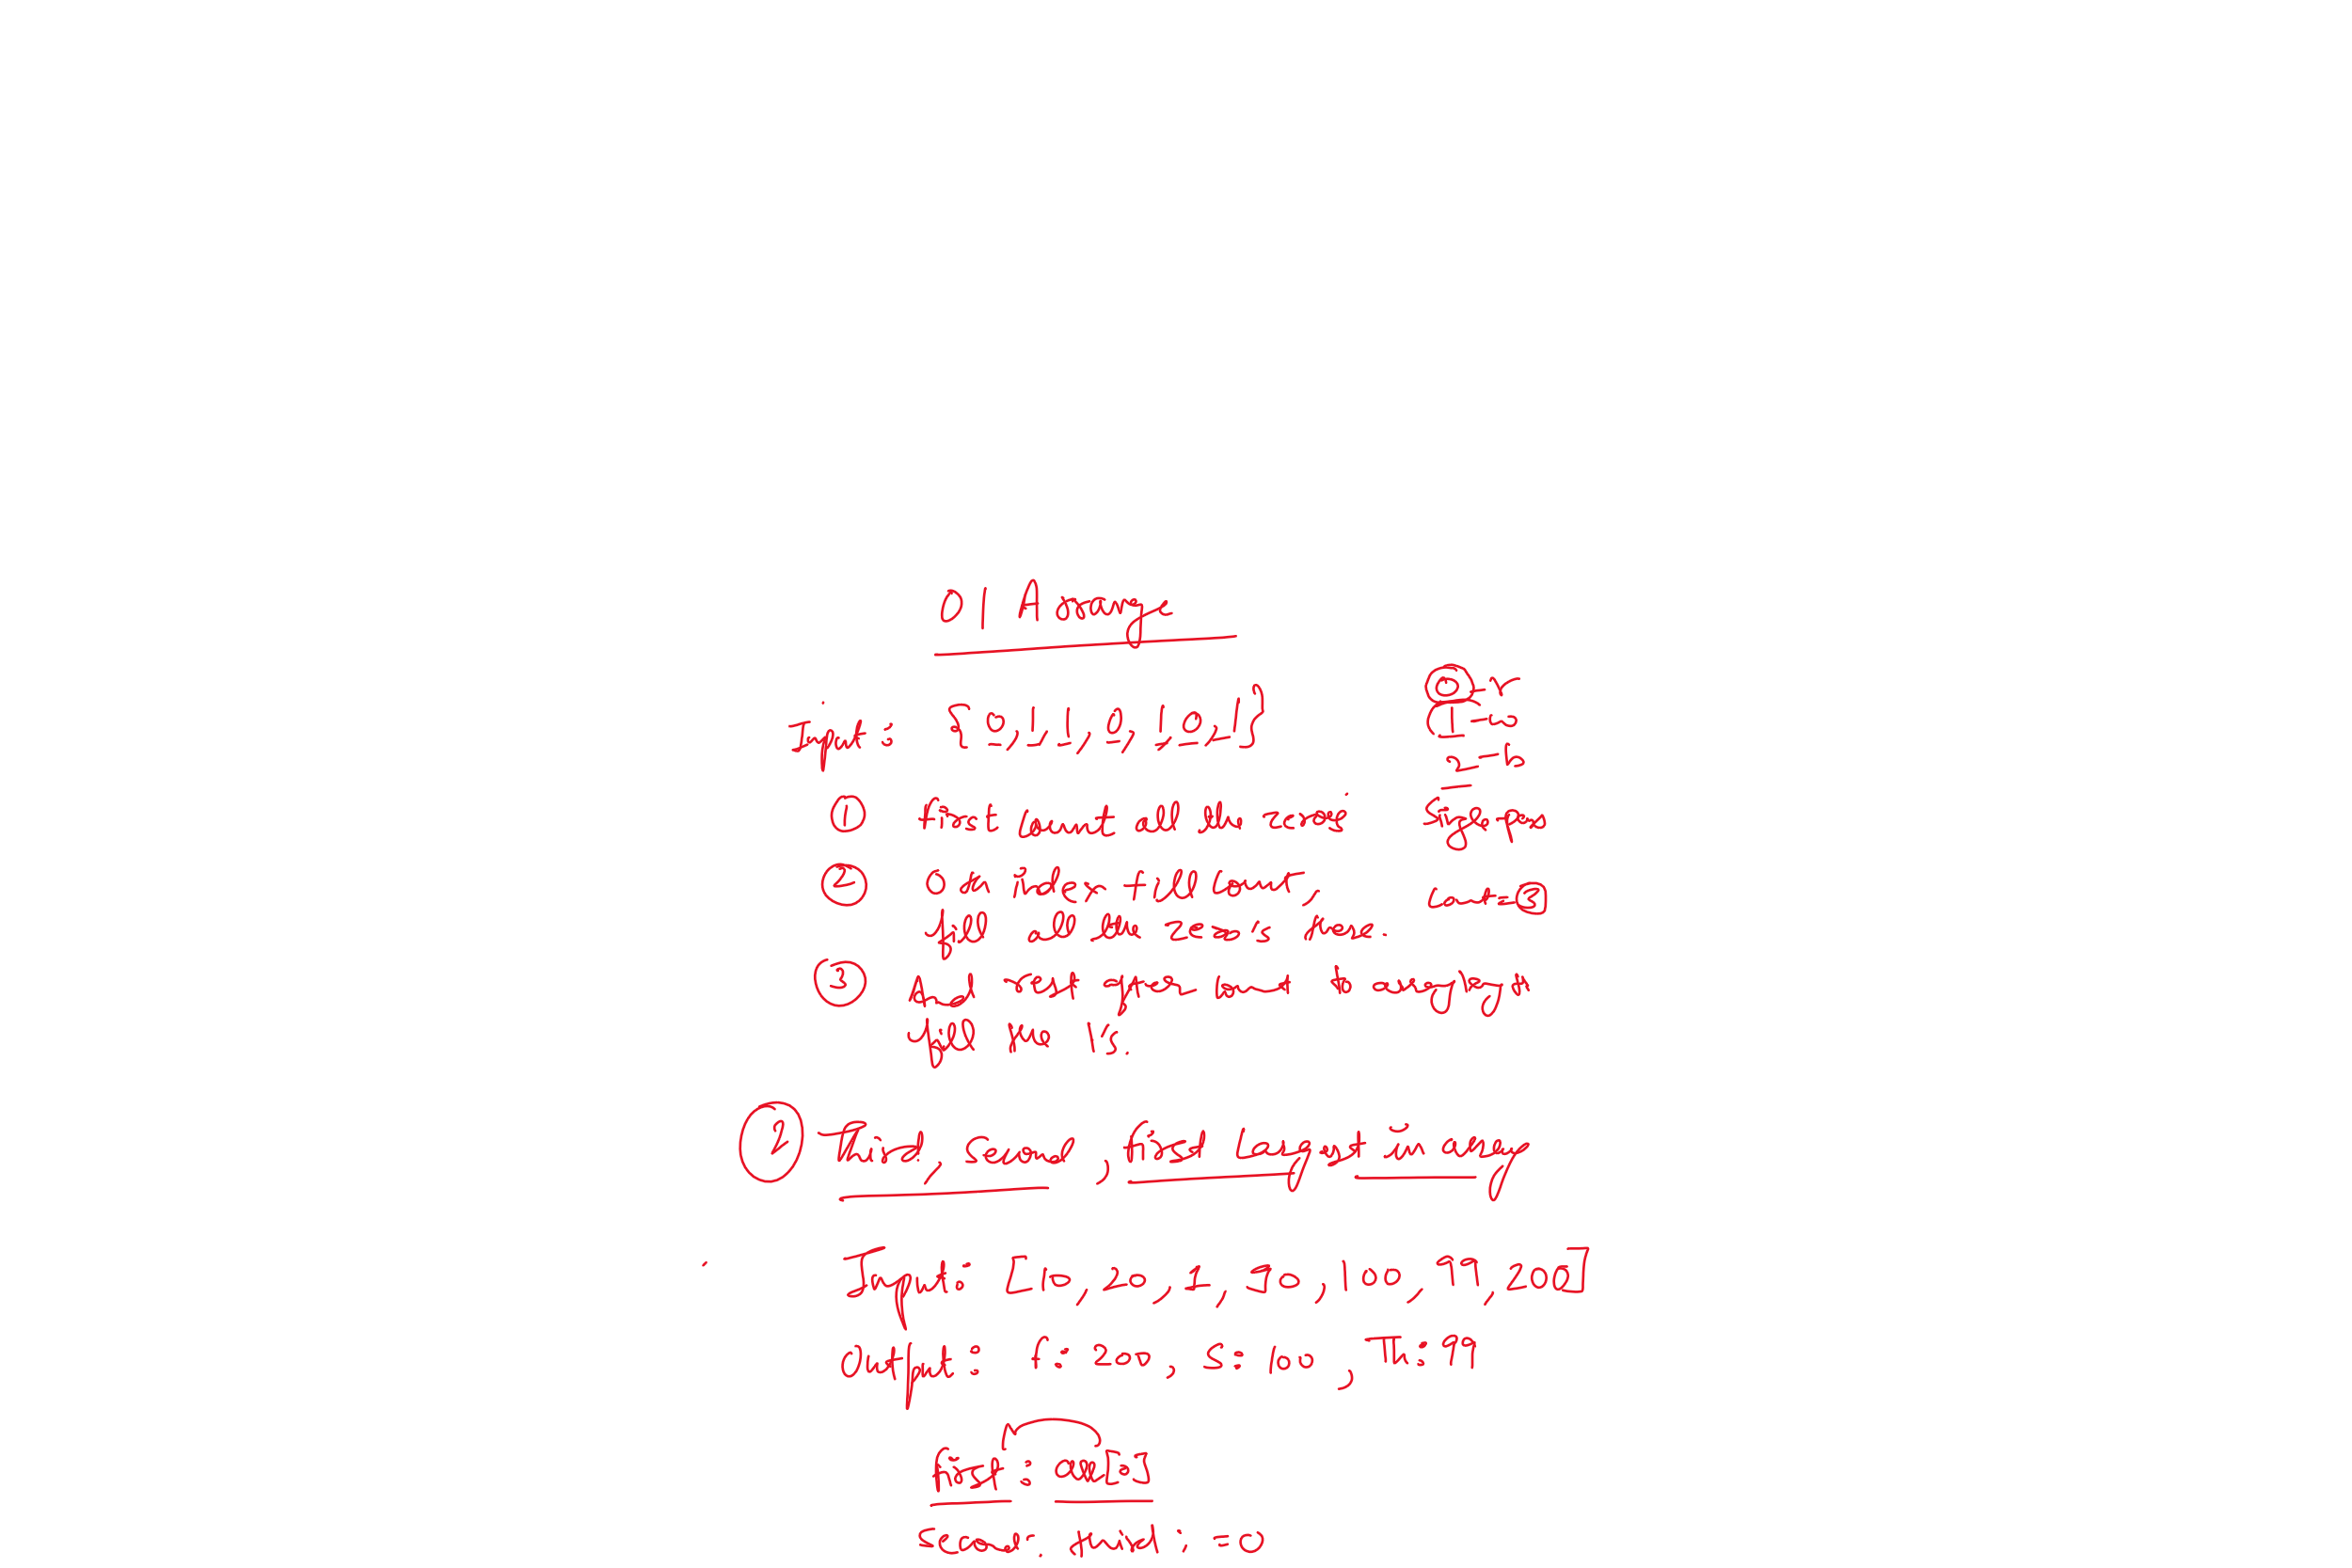 01 Arrange
Input: {0, 1, 1, 0, 1, 0, 1}
0 - r
1 - o
2 - b
① first count all the zeroes
② On index till count,
fill all the zeros here.
③ And rest after count to arr.length
fill the 1's.
count = 3
② Third, second, first largest in array
Input: [10, 20, 1, 50, 100, 99, 200]
Output: f: 200, S: 100, Th: 99
first: arr[0]
second: third: = 0